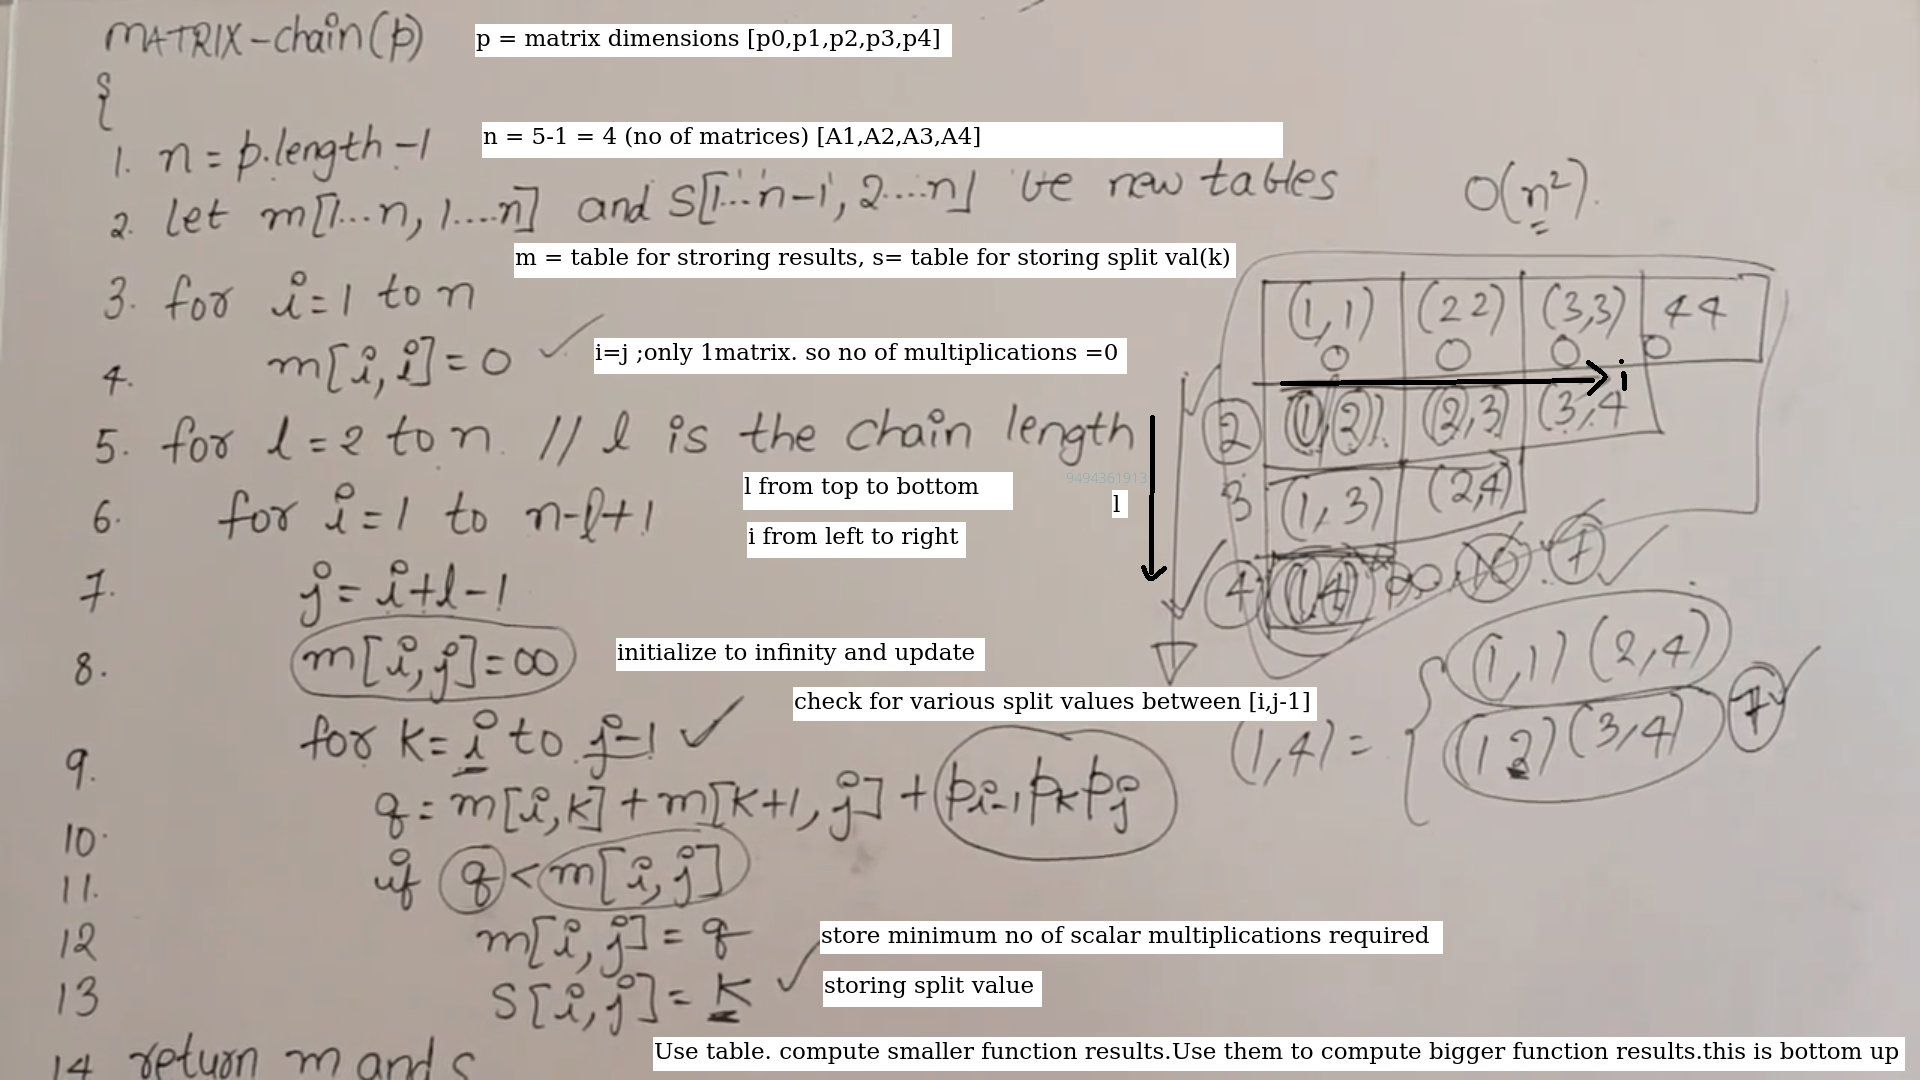 MATRIX-chain(p) p = matrix dimensions [p0,p1,p2,p3,p4]
{
1. n = p.length -1 n = 5-1 = 4 (no of matrices) [A1,A2,A3,A4]
2. let m[1...n, 1....n] and S[1...n-1, 2....n] be new tables O(n²).
m = table for stroring results, s= table for storing split val(k)
3. for i=1 to n
(1,1) (2 2) (3,3) 4 4
4. m[i,i]=0 i=j ;only 1matrix. so no of multiplications =0
0 0 0 0
i
5. for l=2 to n // l is the chain length
2 (1,2) (2,3) (3,4
l from top to bottom
9494361913
l
3 (1,3) (2,4)
6. for i=1 to n-l+1
i from left to right
7. j=i+l-1
4 (1,4) ∞ 10 7
8. m[i,j]=∞ initialize to infinity and update
check for various split values between [i,j-1]
9. for k=i to j-1
(1,4) = { (1,1) (2,4)
(1 2) (3,4) 7
10. q=m[i,k]+m[k+1,j]+pi-1pkpj
11. if q<m[i,j]
12 m[i,j]=q store minimum no of scalar multiplications required
13 S[i,j]=k storing split value
14 return m and s
Use table. compute smaller function results.Use them to compute bigger function results.this is bottom up